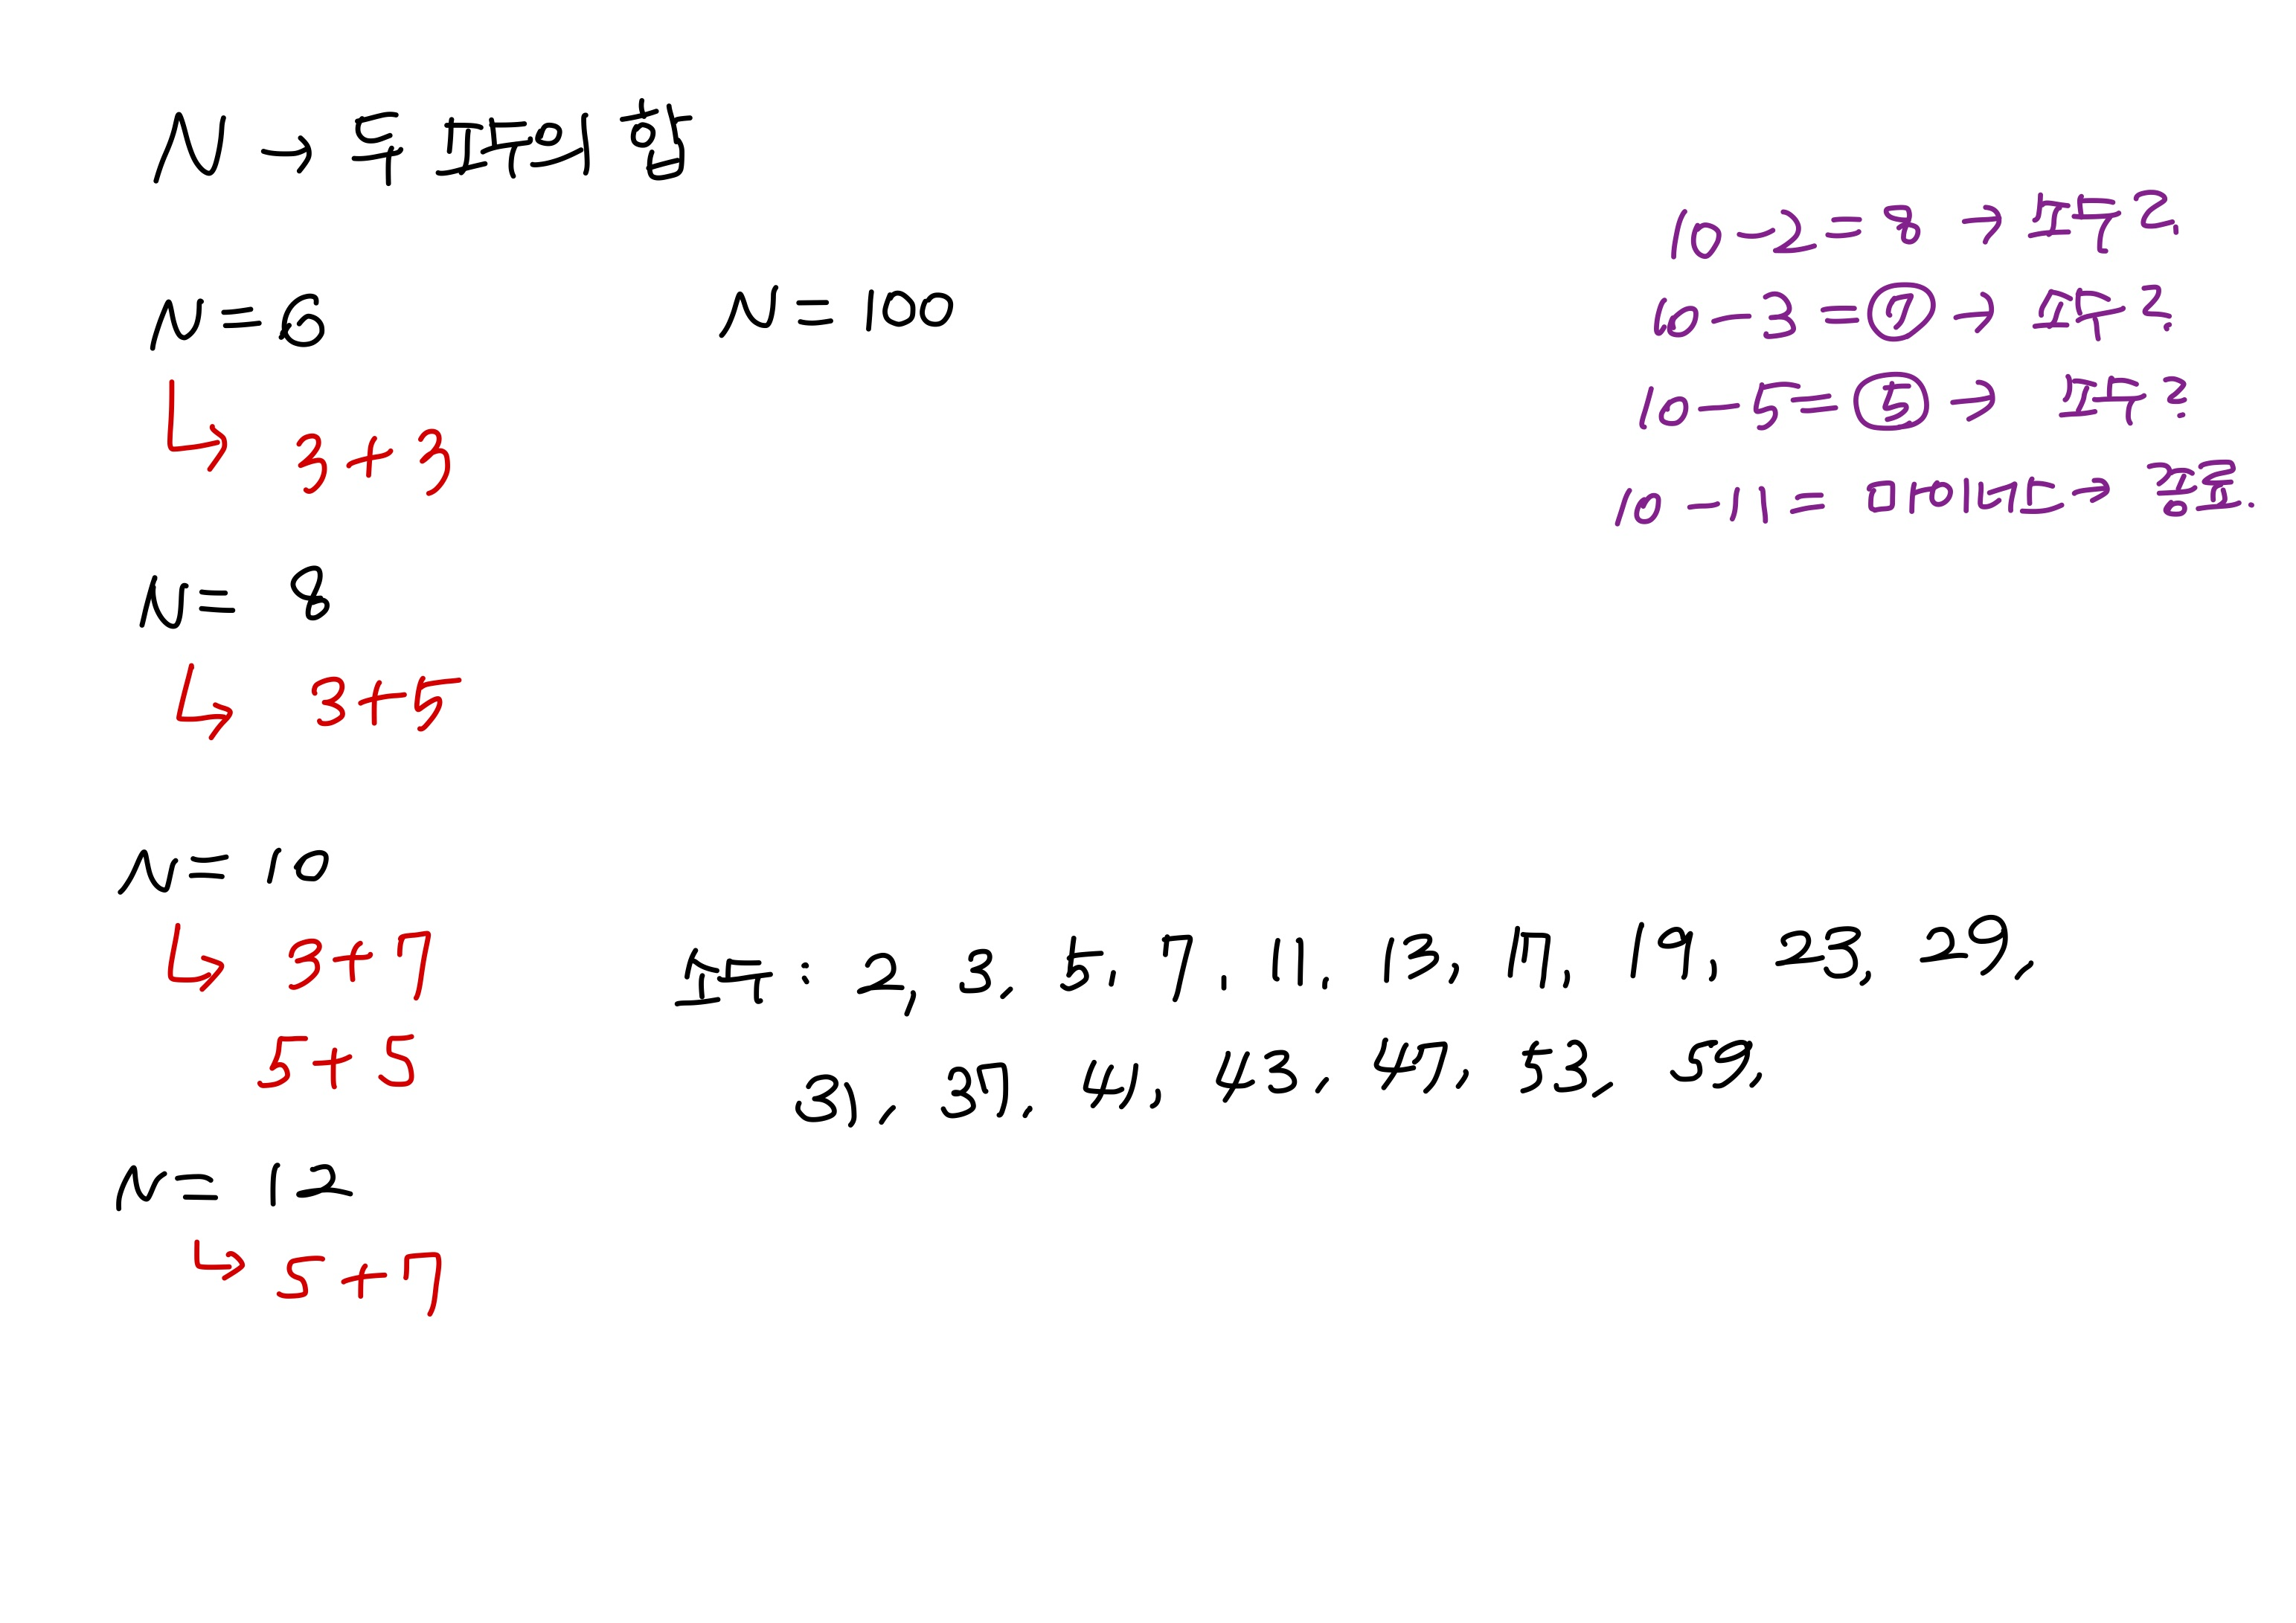 N → 두 소수의 합
N = 6
↳ 3 + 3
N = 8
↳ 3 + 5
N = 10
↳ 3 + 7
5 + 5
N = 12
↳ 5 + 7
N = 100
10 - 2 = 8 → 소수?
10 - 3 = 7 → 소수?
10 - 5 = 5 → 소수?
10 - 11 = 마이너스 → 종료.
소수 : 2, 3, 5, 7, 11, 13, 17, 19, 23, 29,
31, 37, 41, 43, 47, 53, 59,